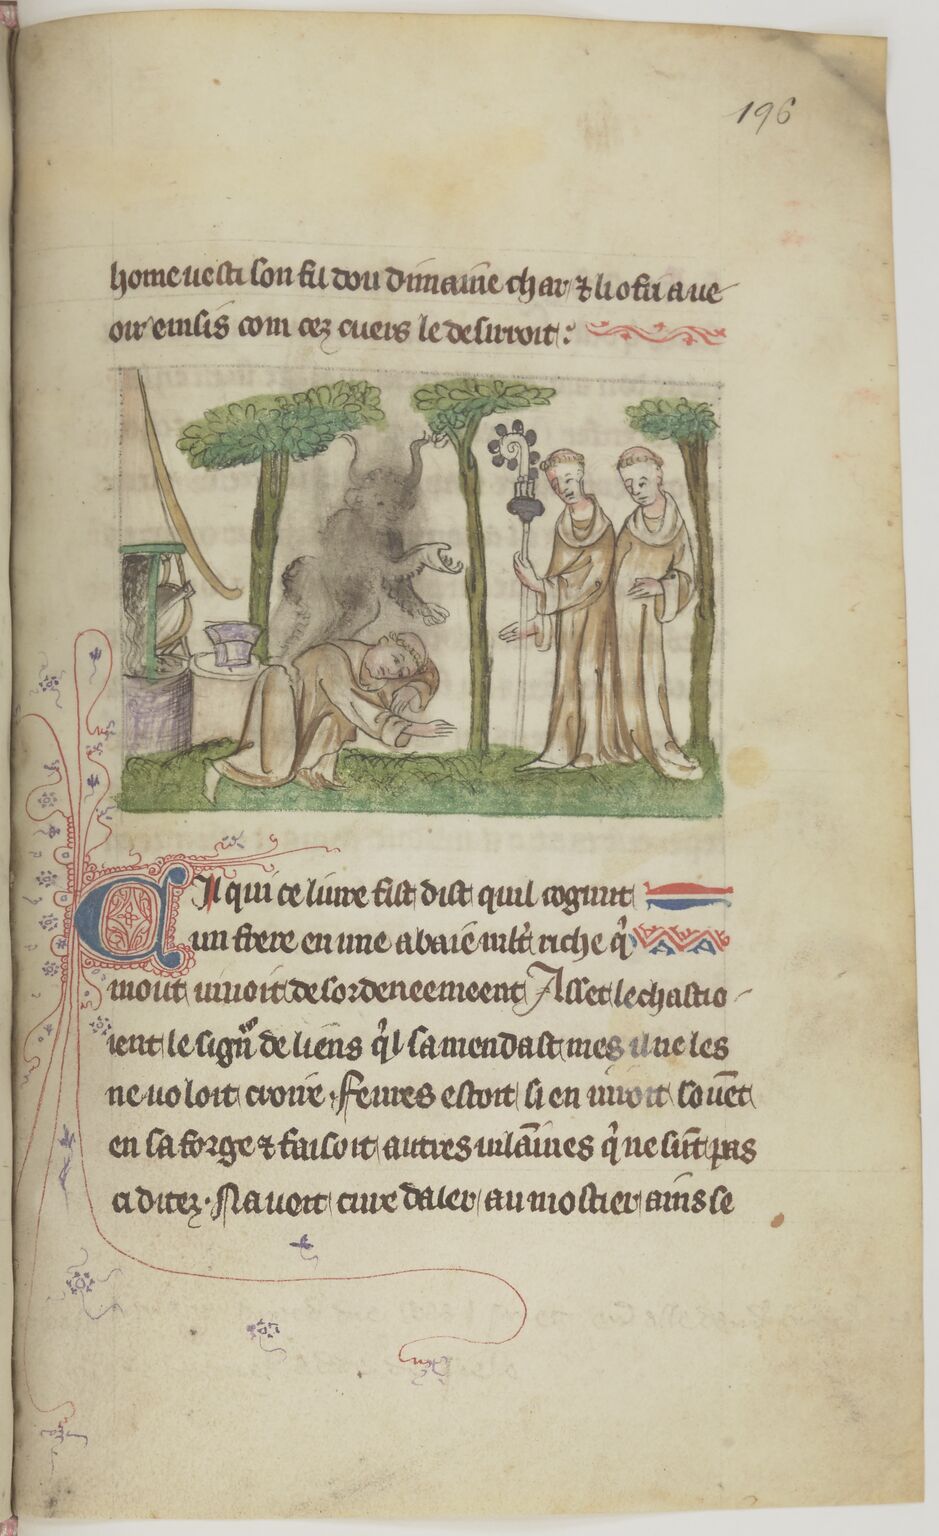 196
home uesti son fil dou dimaine char ⁊ li ofri a ue
oir einsis com cez cuers le desirroit :
Cil qui ce liure fist dist quil cognut
un frere en une abaie mlt riche q̃
mout uiuoit desordeneement Asset le chastio
ient le sign̅r de liens q̃l samendast mes il ne les
ne uoloit croire . Feures estoit si en iuroit souēt
en sa forge ⁊ faisoit autres uilāines q̃ ne sūt pas
a direz . Nauoit cure daler au mostier ains se